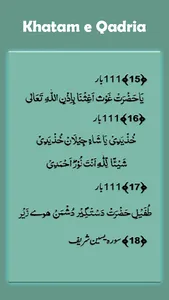 Khatam e Qadria
﴿15﴾ 111 بار
يَا حَضْرَتْ غَوْث اَغِثْنَا بِاِذْنِ اللّٰهِ تَعَالٰى
﴿16﴾ 111 بار
خُذْيَدِىْ يَا شَاهِ جِيْلَاں خُذْيَدِىْ
شَيْئًا لِلّٰهِ اَنْتَ نُوْرٌ اَحْمَدِىْ
﴿17﴾ 111 بار
طُفَيْل حَضْرَت دَسْتگِيْر دُشْمَن هووے زَيْر
﴿18﴾ سوره يٰسين شريف